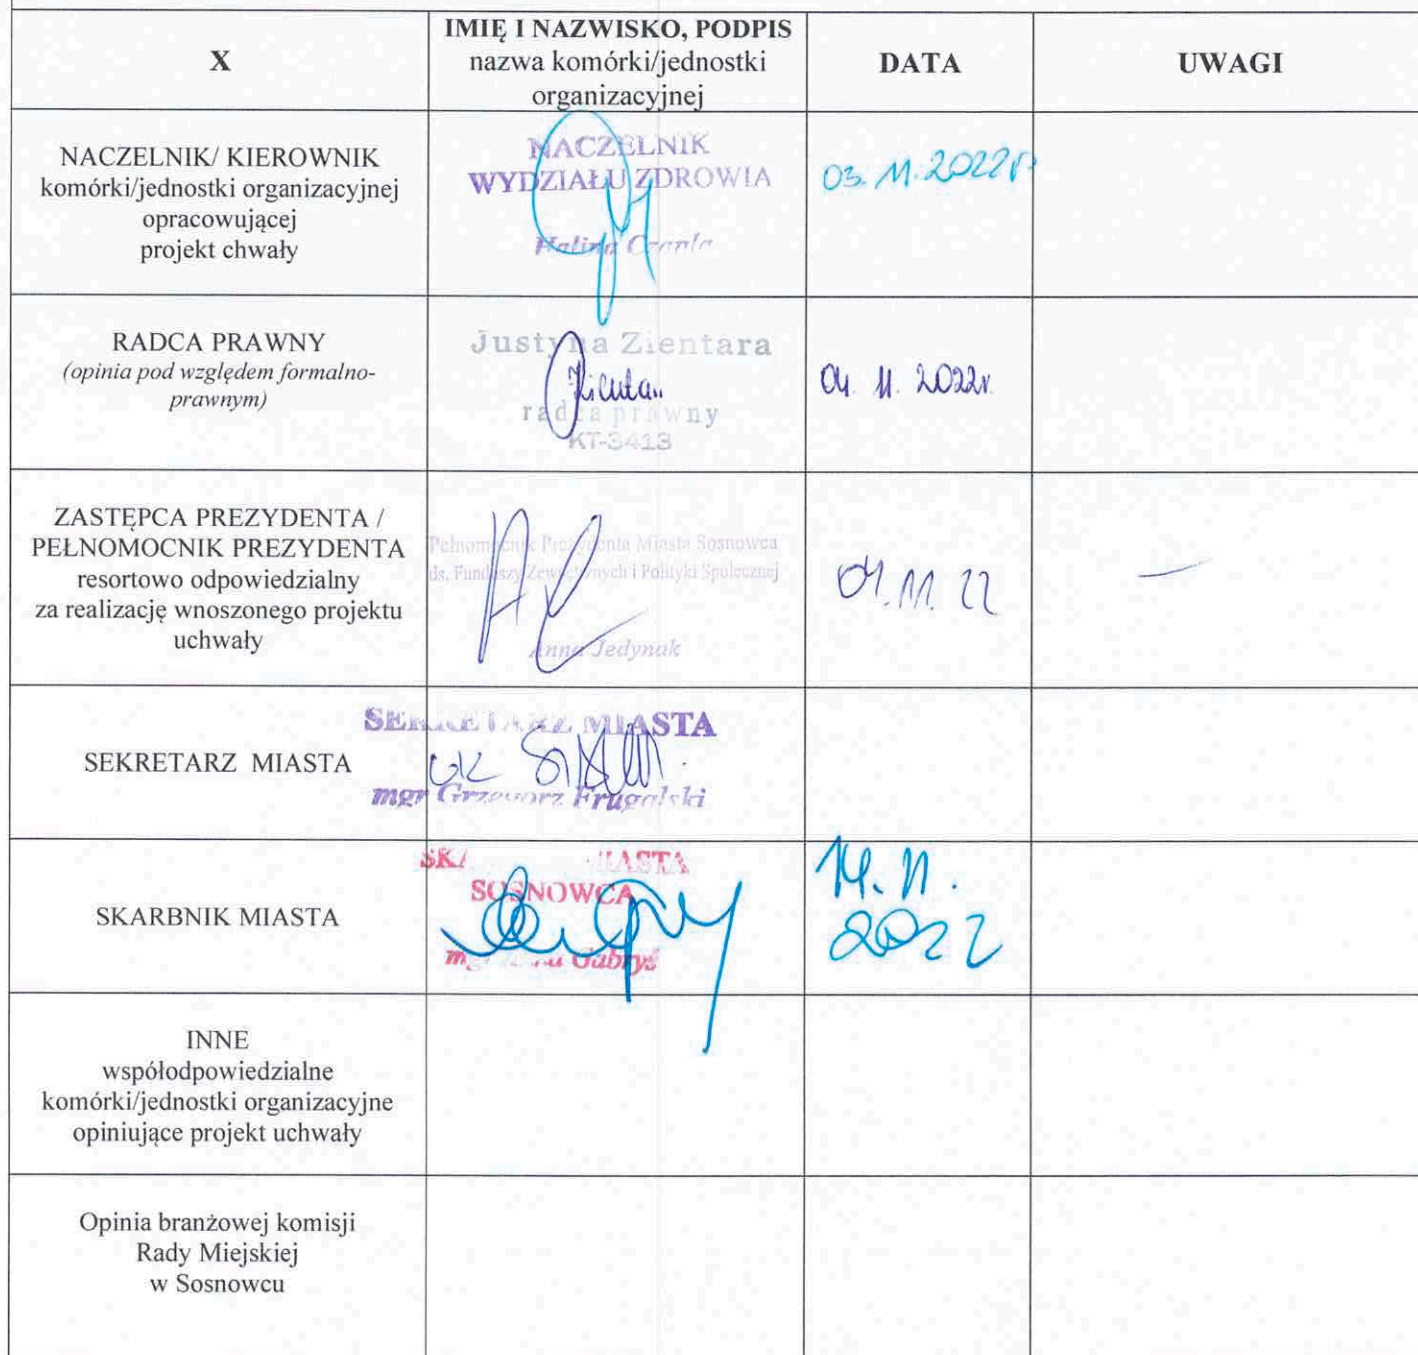 X
IMIĘ I NAZWISKO, PODPIS
nazwa komórki/jednostki
organizacyjnej
DATA
UWAGI
NACZELNIK/ KIEROWNIK
komórki/jednostki organizacyjnej
opracowującej
projekt chwały
NACZELNIK
WYDZIAŁU ZDROWIA
Halina Czapla
03.11.2022r.
RADCA PRAWNY
(opinia pod względem formalno-
prawnym)
Justyna Zientara
radca prawny
KT-3413
04. 11. 2022r.
ZASTĘPCA PREZYDENTA /
PEŁNOMOCNIK PREZYDENTA
resortowo odpowiedzialny
za realizację wnoszonego projektu
uchwały
Pełnomocnik Prezydenta Miasta Sosnowca
ds. Funduszy Zewnętrznych i Polityki Społecznej
Anna Jedynak
04.11.22
—
SEKRETARZ MIASTA
SEKRETARZ MIASTA
mgr Grzegorz Frugalski
SKARBNIK MIASTA
SKARBNIK MIASTA
SOSNOWCA
mgr Gabryś
14.11.
2022
INNE
współodpowiedzialne
komórki/jednostki organizacyjne
opiniujące projekt uchwały
Opinia branżowej komisji
Rady Miejskiej
w Sosnowcu